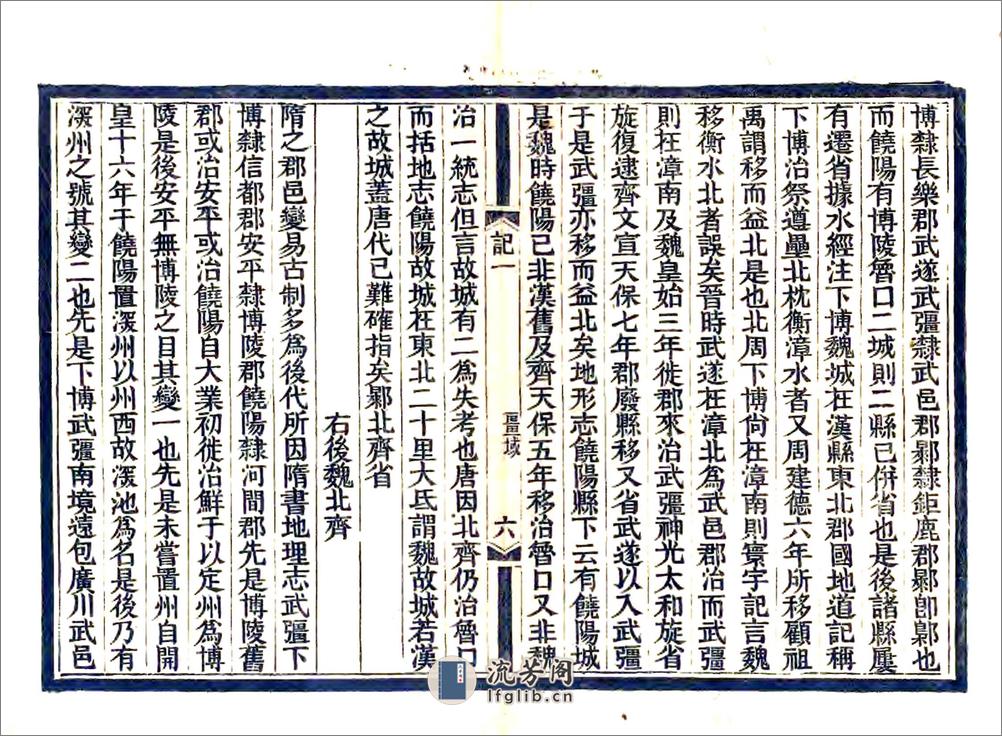 博隸長樂郡武遂武彊隸武邑郡鄡隸鉅鹿郡鄡卽鄡也
而饒陽有博陵魯口二城則二縣已併省也是後諸縣屢
有遷省據水經注下博魏城在漢縣東北郡國地道記稱
下博治祭遵壘北枕衡漳水者又周建德六年所移顧祖
禹謂移而益北是也北周下博尙在漳南則寰宇記言魏
移衡水北者誤矣晉時武遂在漳北為武邑郡治而武彊
則在漳南及魏皇始三年徙郡來治武彊神光太和旋省
旋復逮齊文宣天保七年郡廢縣移又省武遂以入武彊
于是武彊亦移而益北矣地形志饒陽縣下云有饒陽城
是魏時饒陽已非漢舊及齊天保五年移治魯口又非魏
記一
畺域
六
治一統志但言故城有二為失考也唐因北齊仍治魯口
而括地志饒陽故城在東北二十里大氐謂魏故城若漢
之故城蓋唐代已難確指矣鄡北齊省
右後魏北齊
隋之郡邑變易古制多為後代所因隋書地理志武彊下
博隸信都郡安平隸博陵郡饒陽隸河間郡先是博陵舊
郡或治安平或治饒陽自大業初徙治鮮于以定州為博
陵是後安平無博陵之目其變一也先是未嘗置州自開
皇十六年于饒陽置深州以州西故深池為名是後乃有
深州之號其變二也先是下博武彊南境遠包廣川武邑
流芳阁
lfglib.cn